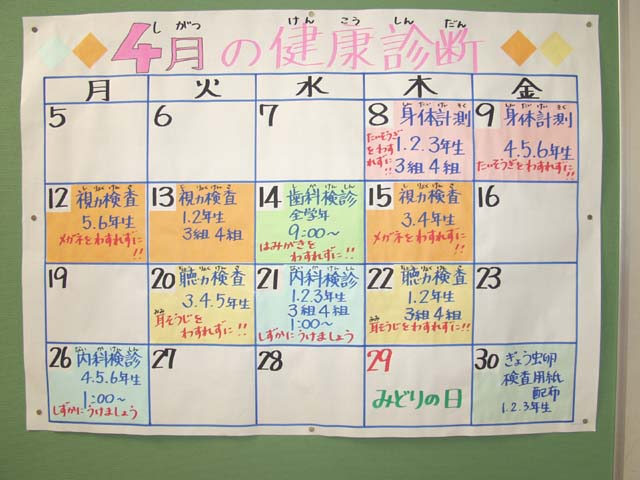 4月の健康診断
しがつ けんこうしんだん
月 火 水 木 金
5
6
7
8 身体計測
たいそうぎをわすれずに!!
1.2.3年生
3組4組
9 身体計測
4.5.6年生
たいそうぎをわすれずに!!
12 視力検査
5.6年生
メガネをわすれずに!!
13 視力検査
1.2年生
3組4組
14 歯科検診
全学年
9:00〜
はみがきをわすれずに!!
15 視力検査
3.4年生
メガネをわすれずに!!
16
19
20 聴力検査
3.4.5年生
耳そうじをわすれずに!!
21 内科検診
1.2.3年生
3組4組
1:00〜
しずかにうけましょう
22 聴力検査
1.2年生
3組4組
耳そうじをわすれずに!!
23
26 内科検診
4.5.6年生
1:00〜
しずかにうけましょう
27
28
29
みどりの日
30 ぎょう虫卵
検査用紙
配布
1.2.3年生